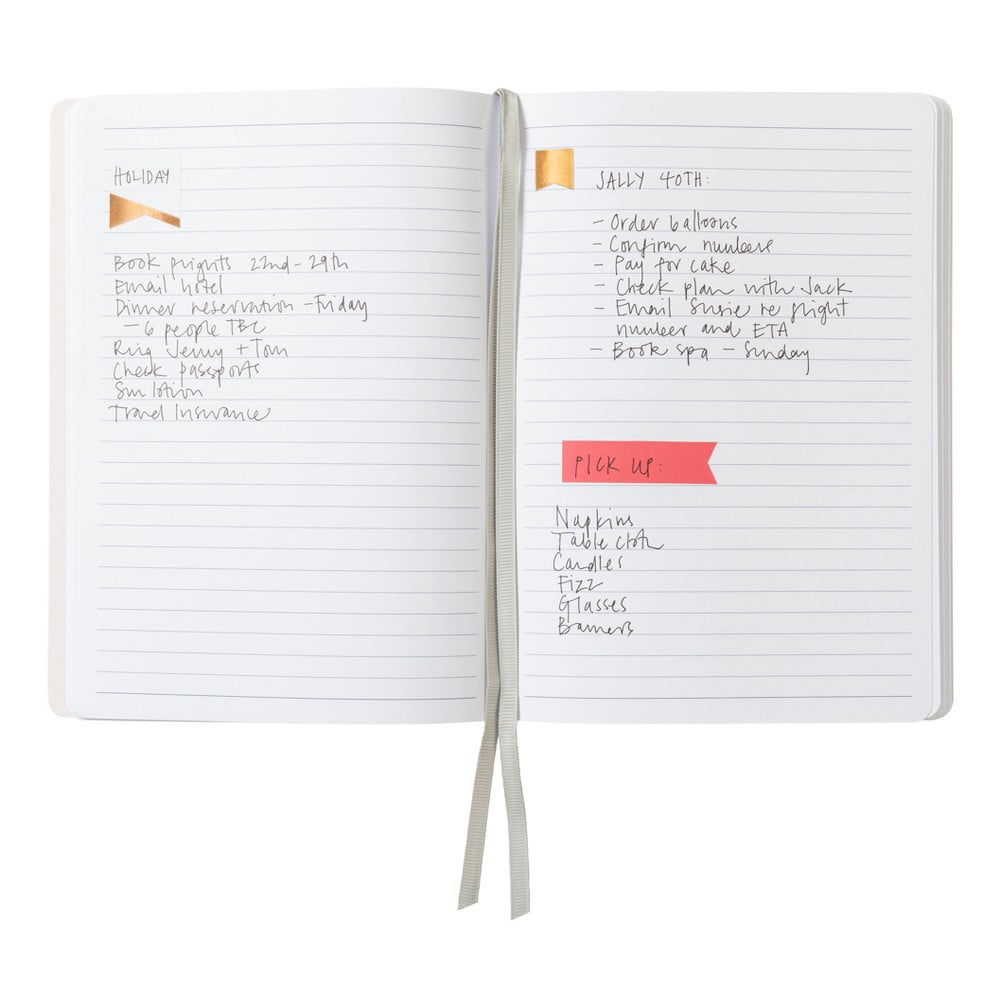 HOLIDAY
Book flights 22nd - 29th
Email hotel
Dinner reservation - Friday
- 6 people TBC
Ring Jenny + Tom
Check passports
Sun lotion
Travel Insurance
SALLY 40TH:
- Order balloons
- Confirm numbers
- Pay for cake
- Check plan with Jack
- Email Susie re flight
number and ETA
- Book spa - Sunday
PICK UP:
Napkins
Table cloth
Candles
Fizz
Glasses
Banners